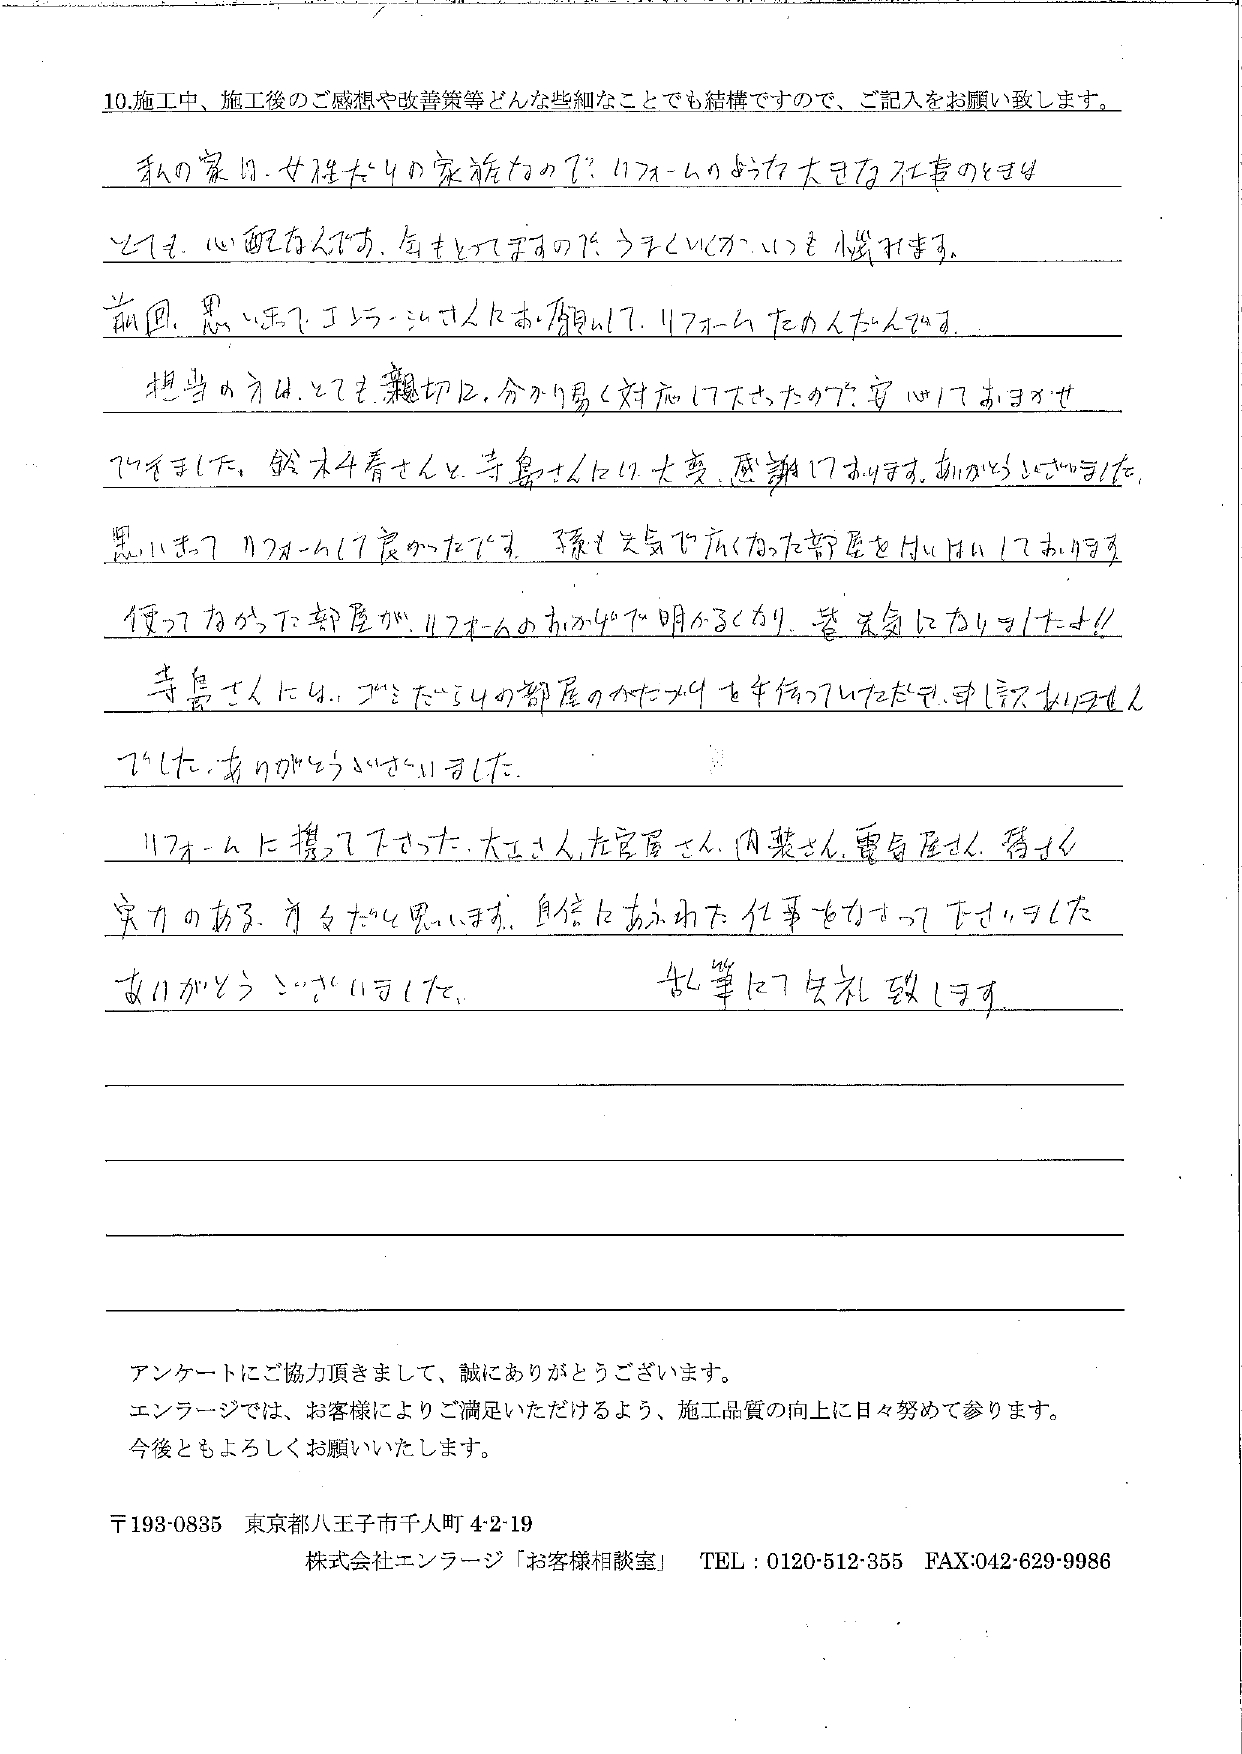 10.施工中、施工後のご感想や改善策等どんな些細なことでも結構ですので、ご記入をお願い致します。
私の家は、女性だけの家族なので、リフォームのような大きな仕事のときは
とても、心配なんです、年もとってますので、うまくいくか、いつも悩みます。
前回、思いきって、エンラージさんにお願いして、リフォームたのんだんです。
担当の方は、とても親切に、分かり易く対応して下さったので、安心しておまかせ
できました。鈴木千春さんと、寺島さんには、大変、感謝しております。ありがとうございました。
思いきってリフォームして良かったです。孫も元気で広くなった部屋をはいはいしております
使ってなかった部屋が、リフォームのおかげで明かるくなり、皆元気になりましたよ!!
寺島さんには、ゴミだらけの部屋のかたづけを手伝っていただき、申し訳ありません
でした。ありがとうございました。
リフォームに携って下さった、大工さん、左官屋さん、内装さん、電気屋さん、皆さん
実力のある、方々だと思います。自信にあふれた仕事をなさって下さいました
ありがとうございました。 乱筆にて失礼致します
アンケートにご協力頂きまして、誠にありがとうございます。
エンラージでは、お客様によりご満足いただけるよう、施工品質の向上に日々努めて参ります。
今後ともよろしくお願いいたします。
〒193-0835 東京都八王子市千人町 4-2-19
株式会社エンラージ「お客様相談室」 TEL：0120-512-355 FAX:042-629-9986